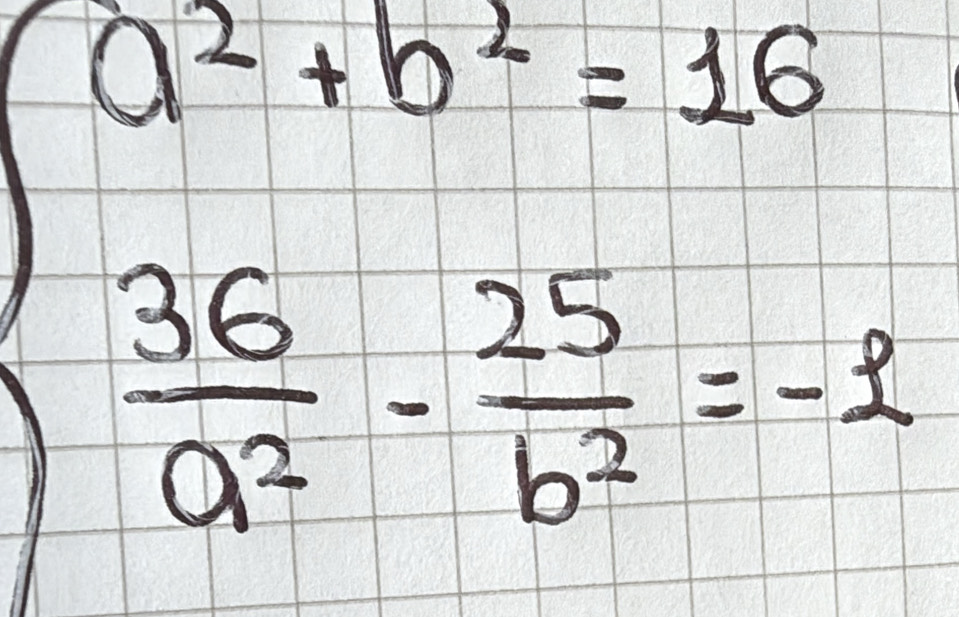 a² + b² = 16
36/a² - 25/b² = -1